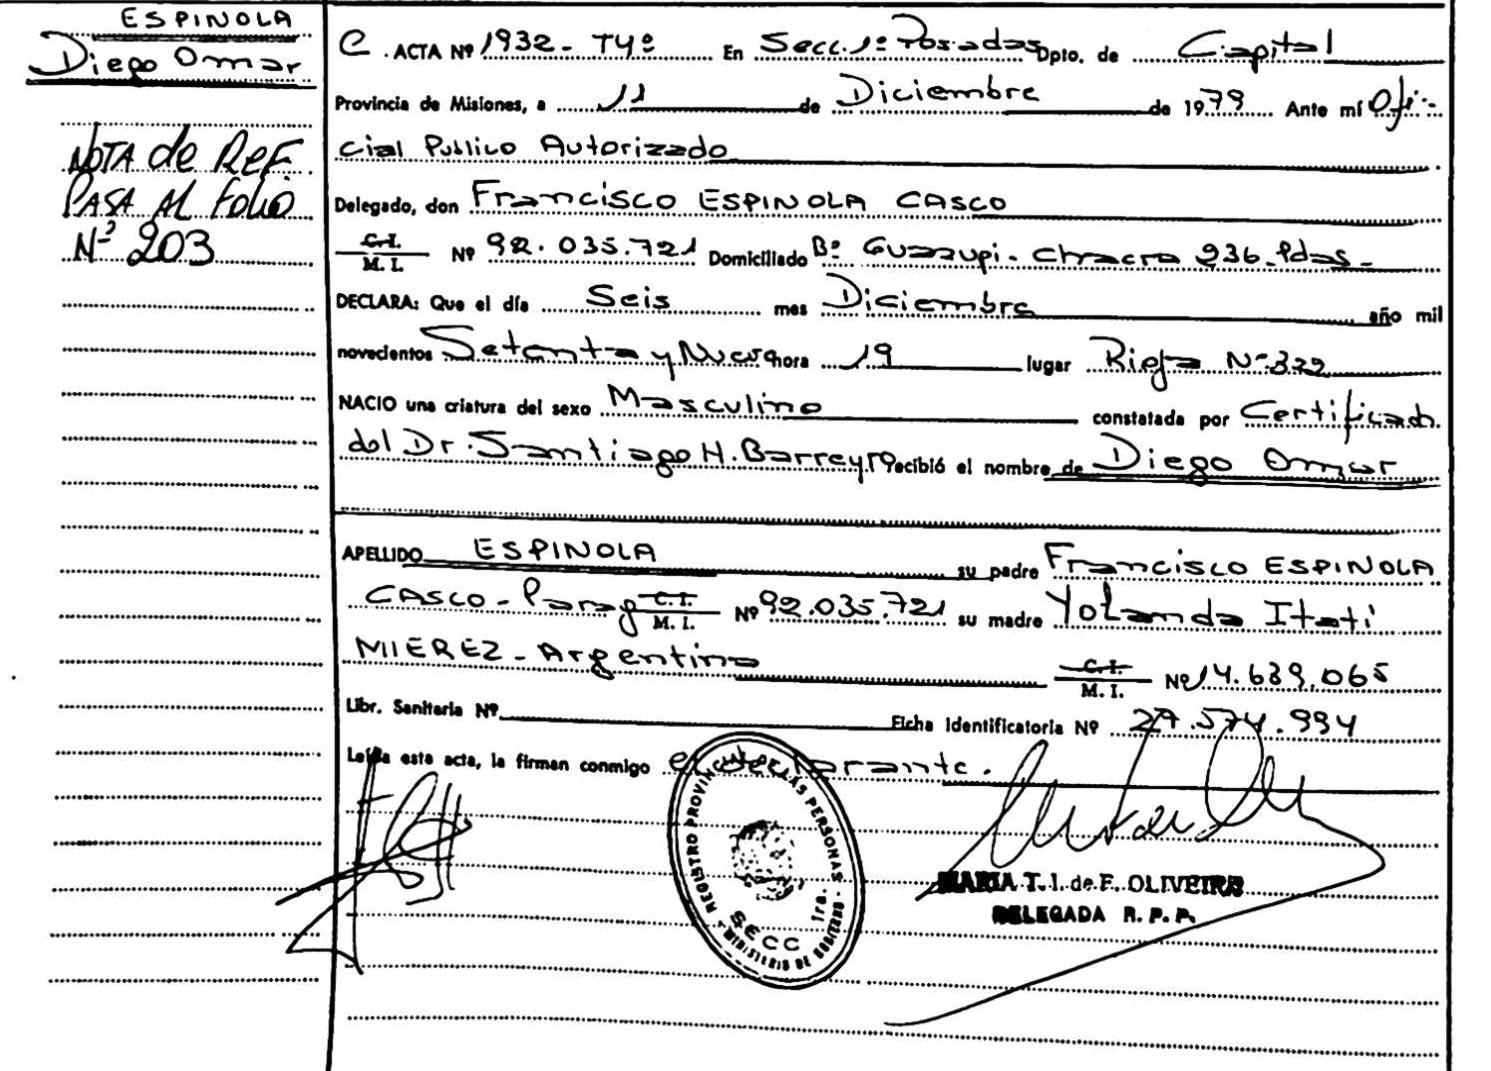 ESPINOLA
Diego Omar
NOTA de REF.
PASA AL Folio
Nº 203
C. ACTA Nº 1932- T4º En Secc. 1º Posadas Dpto. de Capital
Provincia de Misiones, a 11 de Diciembre de 1979 Ante mí Ofi-
cial Publico Autorizado
Delegado, don Francisco ESPINOLA CASCO
C.I.
M. I. Nº 92.035.721 Domiciliado Bº Guazupi- Chacra 236-Pdas-
DECLARA: Que el día Seis mes Diciembre año mil
novecientos Setenta y Nueve hora 19 lugar Rioja Nº 322
NACIO una criatura del sexo Masculino constatada por Certificado
del Dr. Santiago H. Barreyro recibió el nombre de Diego Omar
APELLIDO ESPINOLA su padre Francisco ESPINOLA
CASCO- Parag C.I.
M. I. Nº 92.035.721 su madre Yolanda Itati
MIEREZ- Argentina C.I.
M. I. Nº 14.639.065
Libr. Sanitaria Nº Ficha Identificatoria Nº 27.574.994
Leída esta acta, la firman conmigo el declarante.
REGISTRO PROVINCIAL DE LAS PERSONAS
MINISTERIO DE GOBIERNO
SECC 1ra.
MARIA T. I. de F. OLIVEIRA
DELEGADA R. P. P.